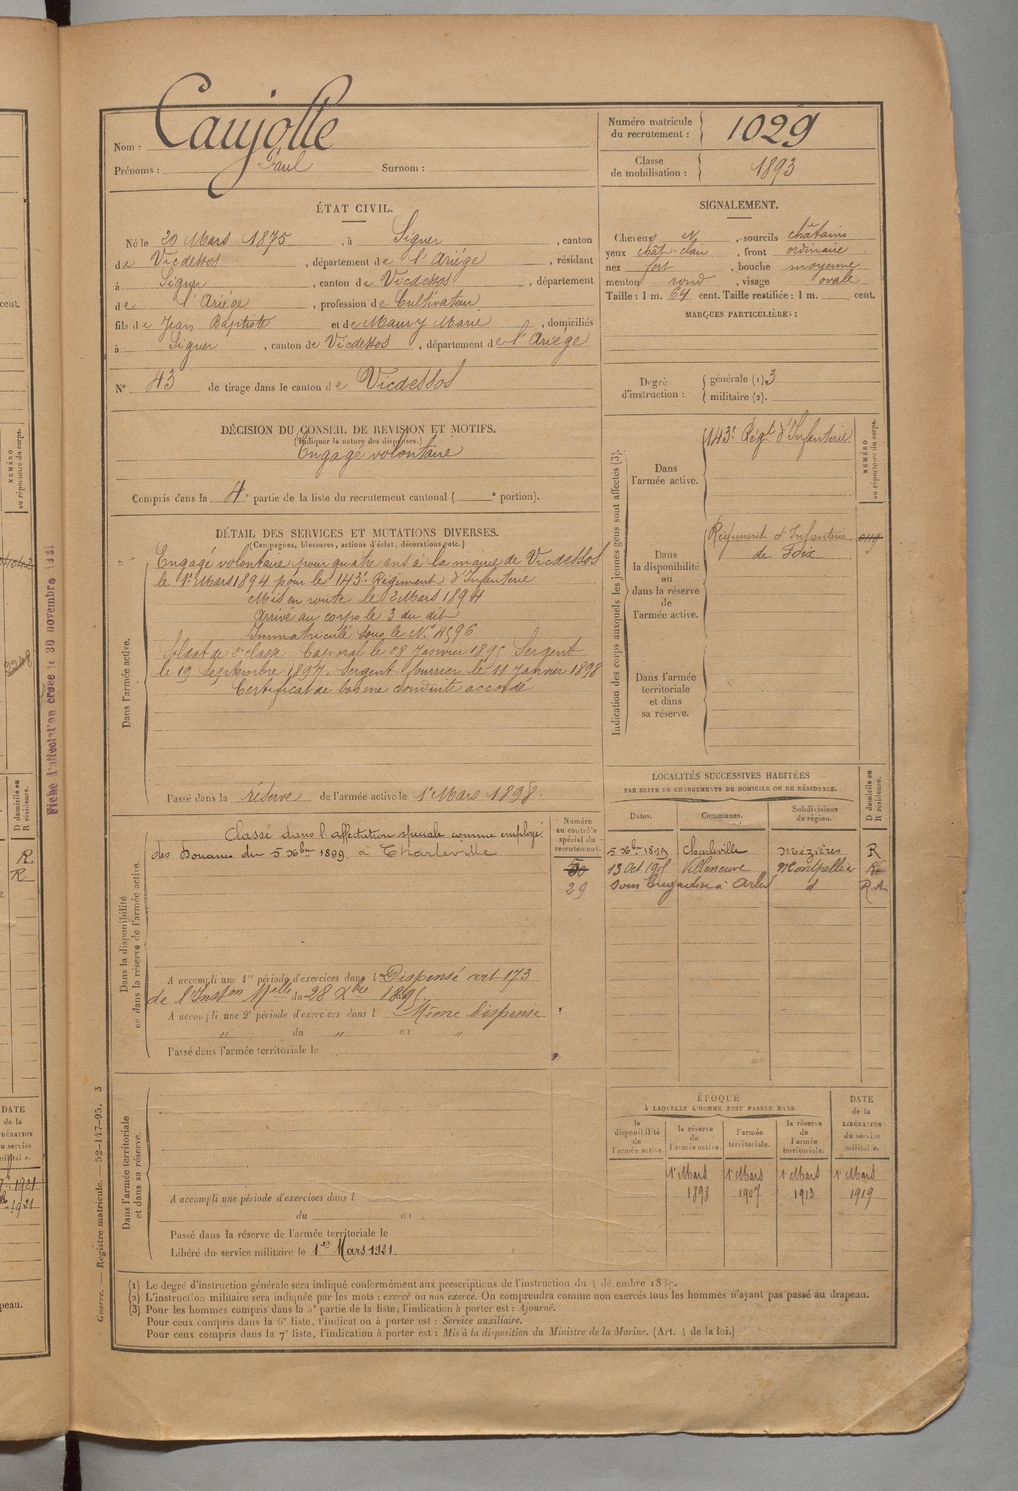 Nom : Caujolle
Prénoms : Paul Surnom :
Numéro matricule du recrutement : 1029
Classe de mobilisation : 1893
ÉTAT CIVIL.
Né le 20 Mars 1875, à Siguer, canton
de Vicdessos, département de l'Ariège, résidant
à Siguer, canton de Vicdessos, département
de l'Ariège, profession de Cultivateur
fils de Jean Baptiste et de Maury Marie, domiciliés
à Siguer, canton de Vicdessos, département de l'Ariège
N° 43 de tirage dans le canton de Vicdessos
SIGNALEMENT.
Cheveux N, sourcils châtains
yeux chât-clair, front ordinaire
nez fort, bouche moyenne
menton rond, visage ovale
Taille : 1 m. 64 cent. Taille rectifiée : 1 m. cent.
MARQUES PARTICULIÈRES :
Degré d'instruction : générale (1). 3
militaire (2).
DÉCISION DU CONSEIL DE REVISION ET MOTIFS.
(Indiquer la nature des dispenses.)
Engagé volontaire
Compris dans la 4e partie de la liste du recrutement cantonal ( e portion).
DÉTAIL DES SERVICES ET MUTATIONS DIVERSES.
(Campagnes, blessures, actions d'éclat, décorations, etc.)
Dans l'armée active.
Engagé volontaire pour quatre ans à la mairie de Vicdessos
le 1er Mars 1894 pour le 143e Régiment d'Infanterie
Mis en route le 2 Mars 1894
Arrivé au corps le 3 du dit
Immatriculé sous le N° 4596
Soldat de 2e classe Caporal le 28 Janvier 1895 Sergent
le 19 Septembre 1897. Sergent fourrier le 11 Janvier 1898
Certificat de bonne conduite accordé
Passé dans la réserve de l'armée active le 1er Mars 1898.
Indication des corps auxquels les jeunes gens sont affectés (3).
NUMÉRO au répertoire du corps.
Dans l'armée active.
143e Régt d'Infanterie
Dans la disponibilité ou dans la réserve de l'armée active.
Régiment d'Infanterie
de Foix
Dans l'armée territoriale et dans sa réserve.
Dans la disponibilité ou dans la réserve de l'armée active.
Classé dans l'affectation spéciale comme employé
des Douanes du 5 Xbre 1899. à Charleville
Numéro au contrôle spécial du recrutement.
50
29
A accompli une 1re période d'exercices dans l Dispensé art 173
de l'Inston Melle du 28 Xbre
A accompli une 2e période d'exercices dans l Même dispense
du au
Passé dans l'armée territoriale le
LOCALITÉS SUCCESSIVES HABITÉES
PAR SUITE DE CHANGEMENTS DE DOMICILE OU DE RÉSIDENCE.
Dates. Communes. Subdivisions de région. D domicile ou R résidence.
5 Xbre 1899 Charleville Mézières R
13 Oct 1905 Villeneuve Montpellier R
Dans l'armée territoriale et dans sa réserve.
A accompli une période d'exercices dans l
du au
Passé dans la réserve de l'armée territoriale le
Libéré du service militaire le 1er Mars 1921.
ÉPOQUE
À LAQUELLE L'HOMME DOIT PASSER DANS
la disponibilité de l'armée active.
la réserve de l'armée active.
l'armée territoriale.
la réserve de l'armée territoriale.
DATE de la LIBÉRATION du service militaire.
1er Mars 1898
1er Mars 1907
1er Mars 1913
1er Mars 1919
(1) Le degré d'instruction générale sera indiqué conformément aux prescriptions de l'instruction du 4 décembre
(2) L'instruction militaire sera indiquée par les mots : exercé ou non exercé. On comprendra comme non exercés tous les hommes n'ayant pas passé au drapeau.
(3) Pour les hommes compris dans la 5e partie de la liste, l'indication à porter est : Ajourné.
Pour ceux compris dans la 6e liste, l'indication à porter est : Service auxiliaire.
Pour ceux compris dans la 7e liste, l'indication à porter est : Mis à la disposition du Ministre de la Marine. (Art. 4 de la loi.)
Guerre. — Registre matricule. 52-147-95. 3
Fiche d'affectation créée le 30 novembre